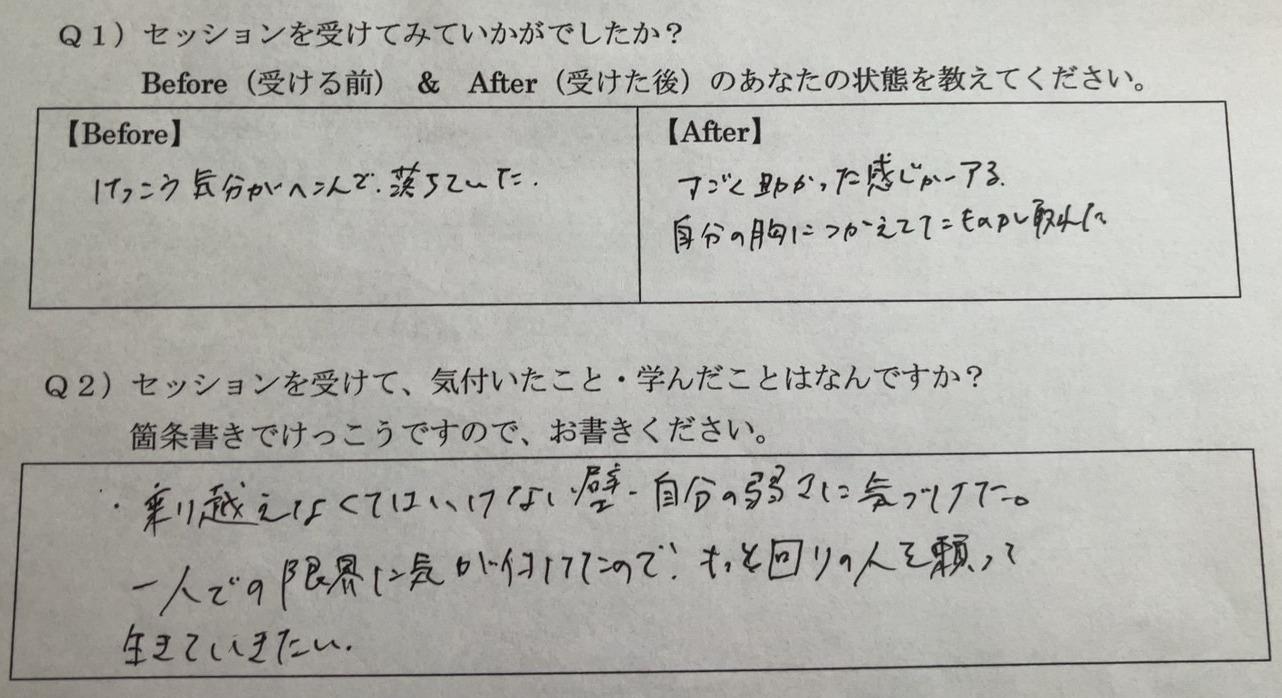 Q1）セッションを受けてみていかがでしたか？
Before（受ける前） & After（受けた後）のあなたの状態を教えてください。
【Before】
けっこう気分がへこんで、落ちていた。
【After】
すごく助かった感じがする。
自分の胸につかえてたものが取れた
Q2）セッションを受けて、気付いたこと・学んだことはなんですか？
箇条書きでけっこうですので、お書きください。
・乗り越えなくてはいけない壁・自分の弱さに気づけた。
一人での限界に気が付けたので、もっと回りの人を頼って
生きていきたい。